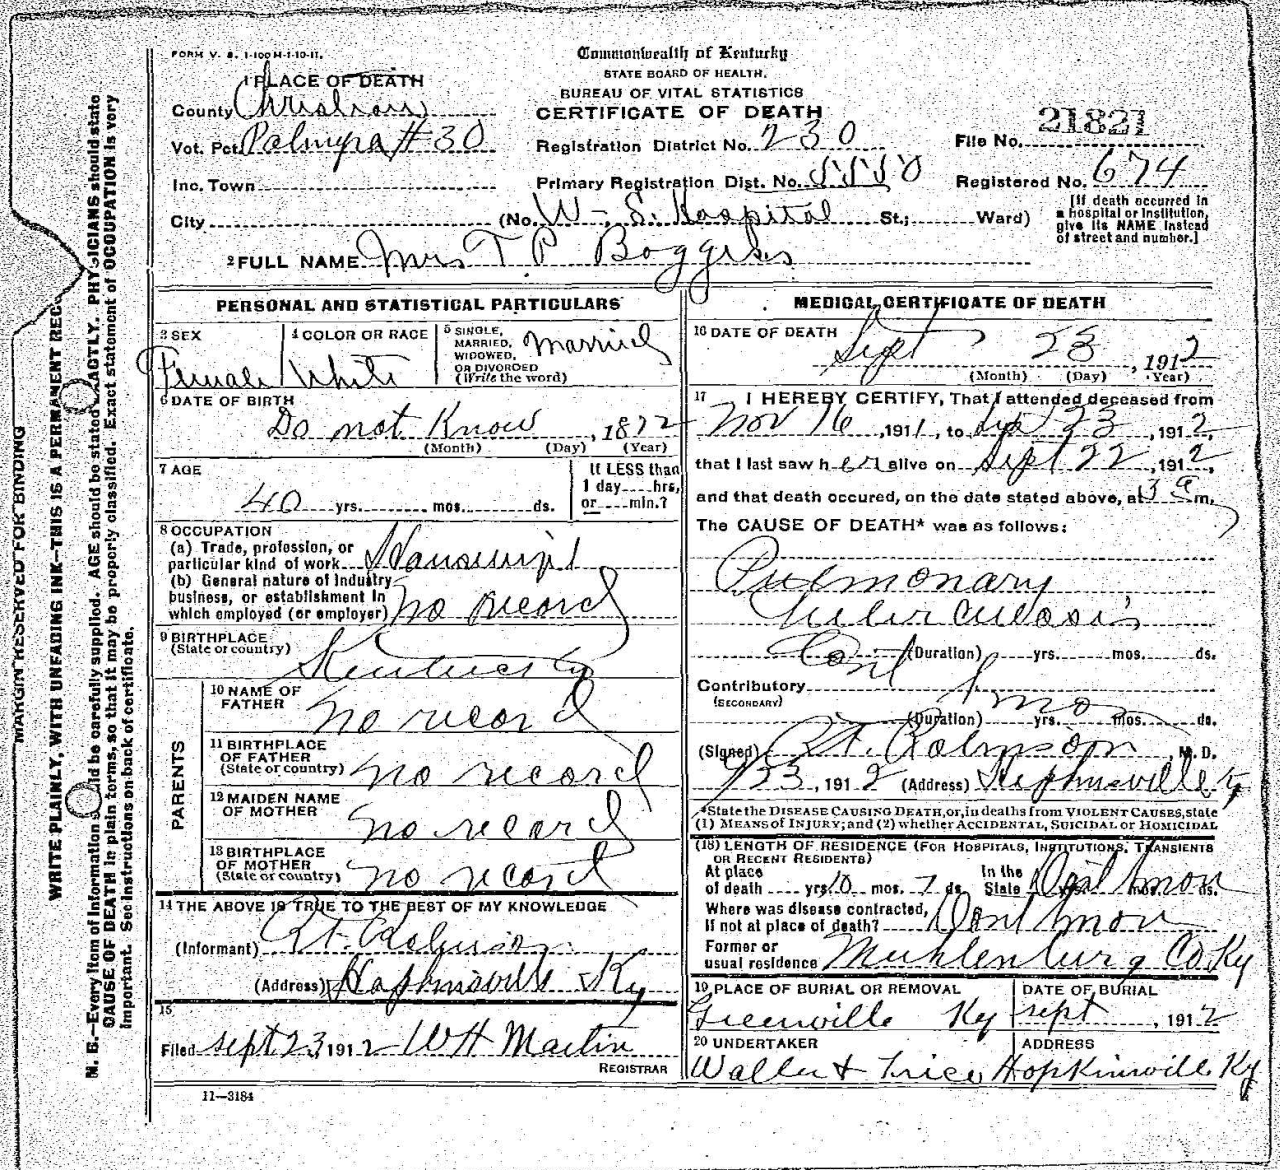 FORM V. S. 1-100 M-1-10-11.
Commonwealth of Kentucky
STATE BOARD OF HEALTH,
BUREAU OF VITAL STATISTICS
CERTIFICATE OF DEATH
1 PLACE OF DEATH
County Christian
Vot. Pct. Palmyra # 30
Registration District No. 230
File No. 21821
Inc. Town
Primary Registration Dist. No. 5550
Registered No. 674
City
(No. W. S. Hospital St.; Ward)
[If death occurred in
a hospital or institution,
give its NAME instead
of street and number.]
2 FULL NAME Mrs T P Boggess
PERSONAL AND STATISTICAL PARTICULARS
3 SEX
Female
4 COLOR OR RACE
White
5 SINGLE,
MARRIED,
WIDOWED,
OR DIVORCED
(Write the word)
Married
6 DATE OF BIRTH
Do not Know, 1872
(Month) (Day) (Year)
7 AGE
40 yrs. mos. ds.
If LESS than
1 day hrs,
or min.?
8 OCCUPATION
(a) Trade, profession, or
particular kind of work
(b) General nature of Industry
business, or establishment in
which employed (or employer) no record
9 BIRTHPLACE
(State or country)
Kentucky
PARENTS
10 NAME OF
FATHER
no record
11 BIRTHPLACE
OF FATHER
(State or country) no record
12 MAIDEN NAME
OF MOTHER
no record
13 BIRTHPLACE
OF MOTHER
(State or country) no record
14 THE ABOVE IS TRUE TO THE BEST OF MY KNOWLEDGE
(Informant)
(Address) Hopkinsville Ky
15
Filed Sept 23, 1912 W H Martin
REGISTRAR
11—3184
MEDICAL CERTIFICATE OF DEATH
16 DATE OF DEATH
Sept 23, 1912
(Month) (Day) (Year)
17 I HEREBY CERTIFY, That I attended deceased from
Nov 16, 1911, to Sept 23, 1912,
that I last saw her alive on Sept 22, 1912,
and that death occured, on the date stated above, at 3 a m.
The CAUSE OF DEATH* was as follows:
Pulmonary
Tuberculosis
(Duration) yrs. mos. ds.
Contributory
(SECONDARY)
(Duration) yrs. mos. ds.
(Signed) M. D.
9/23, 1912 (Address) Hopkinsville Ky
*State the DISEASE CAUSING DEATH, or, in deaths from VIOLENT CAUSES, state
(1) MEANS of INJURY; and (2) whether ACCIDENTAL, SUICIDAL or HOMICIDAL
(18) LENGTH OF RESIDENCE (FOR HOSPITALS, INSTITUTIONS, TRANSIENTS
OR RECENT RESIDENTS)
At place
of death yrs 10 mos. 7 ds.
In the
State yrs. mos. ds.
Where was disease contracted,
If not at place of death?
Former or
usual residence Muhlenburg Co Ky
19 PLACE OF BURIAL OR REMOVAL
Greenville Ky
DATE OF BURIAL
Sept, 1912
20 UNDERTAKER
Waller & Trice
ADDRESS
Hopkinsville Ky
MARGIN RESERVED FOR BINDING
WRITE PLAINLY, WITH UNFADING INK—THIS IS A PERMANENT REC
N. B.—Every item of information should be carefully supplied. AGE should be stated EXACTLY. PHYSICIANS should state
CAUSE OF DEATH in plain terms, so that it may be properly classified. Exact statement of OCCUPATION is very
important. See instructions on back of certificate.